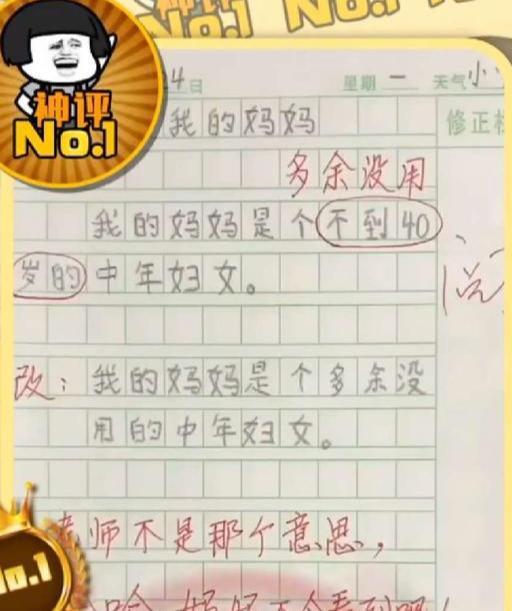 No.1 No.1
神评
No.1
4日 星期一 天气小
我的妈妈 修正栏
多余没用
我的妈妈是个不到40
岁的中年妇女。
改：我的妈妈是个多余没
用的中年妇女。
老师不是那个意思，
No.1